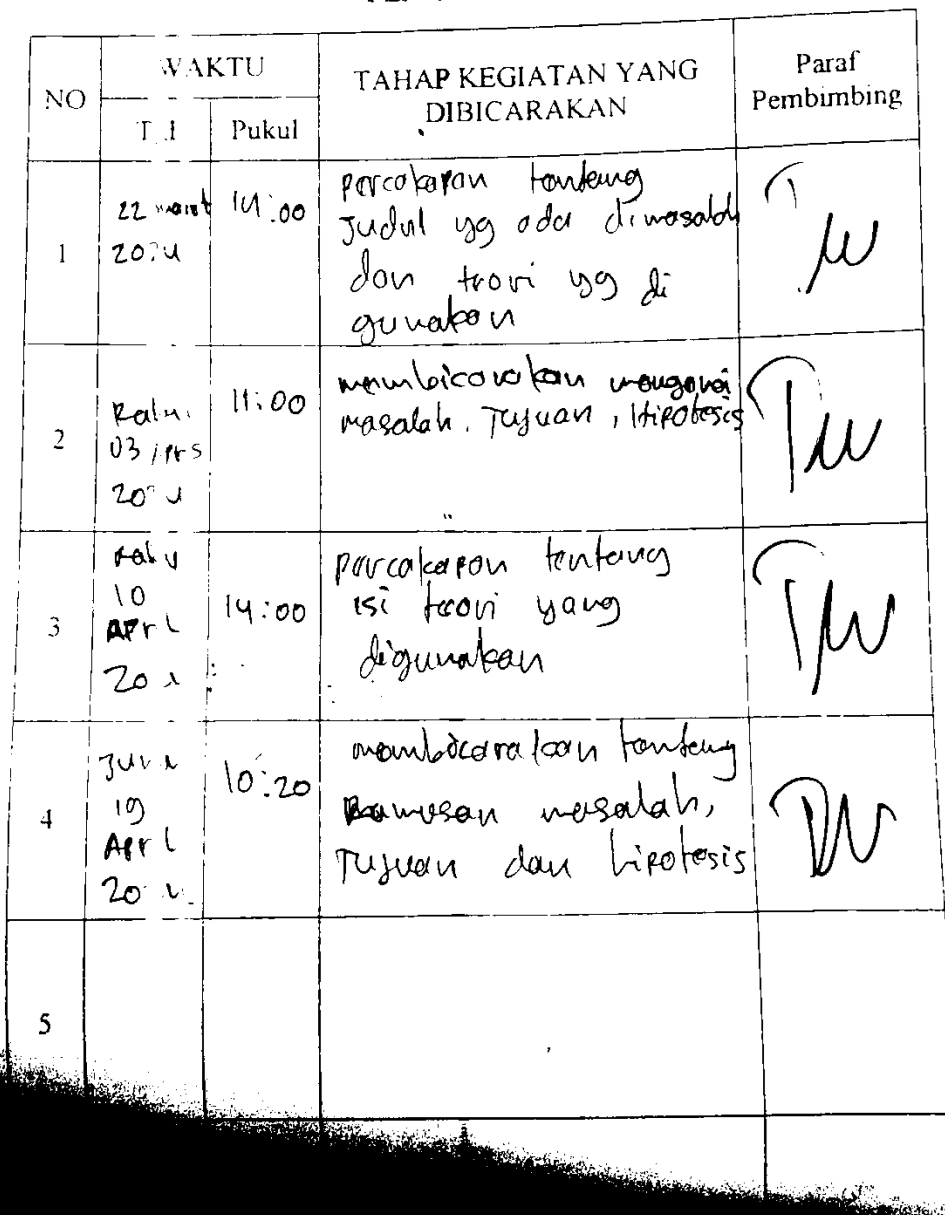 NO
WAKTU
TAHAP KEGIATAN YANG
DIBICARAKAN
Paraf
Pembimbing
Pukul
1
22 maret
14:00
percakapan tentang
Judul yg ada dimasalah
dan teori yg di
gunakan
2
Rabu
03
11:00
membicarakan mengenai
masalah. Tujuan, Hipotesis
3
Rabu
10
14:00
percakapan tentang
isi teori yang
digunakan
4
19
10:20
membicarakan tentang
Rumusan masalah,
Tujuan dan hipotesis
5